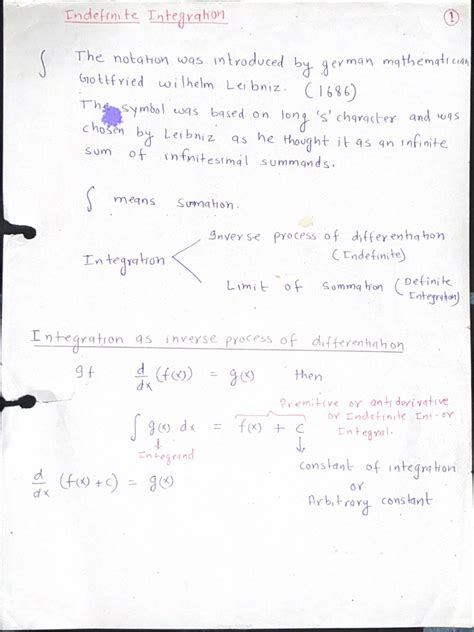 Indefinite Integration
1
∫ The notation was introduced by german mathematician
Gottfried wilhelm Leibniz. (1686)
The symbol was based on long 's' character and was
chosen by Leibniz as he thought it as an infinite
sum of infnitesimal summands.
∫ means sumation.
Integration
Inverse process of differentiation
(Indefinite)
Limit of sommation (Definite
Integration)
Integration as inverse process of differentiation
If d/dx (f(x)) = g(x) then
Premitive or antiderivative
or Indefinite Int. or
Integral.
∫ g(x) dx = f(x) + c
↓ Integrand
↓
constant of integration
or
Arbitrary constant
d/dx (f(x)+c) = g(x)